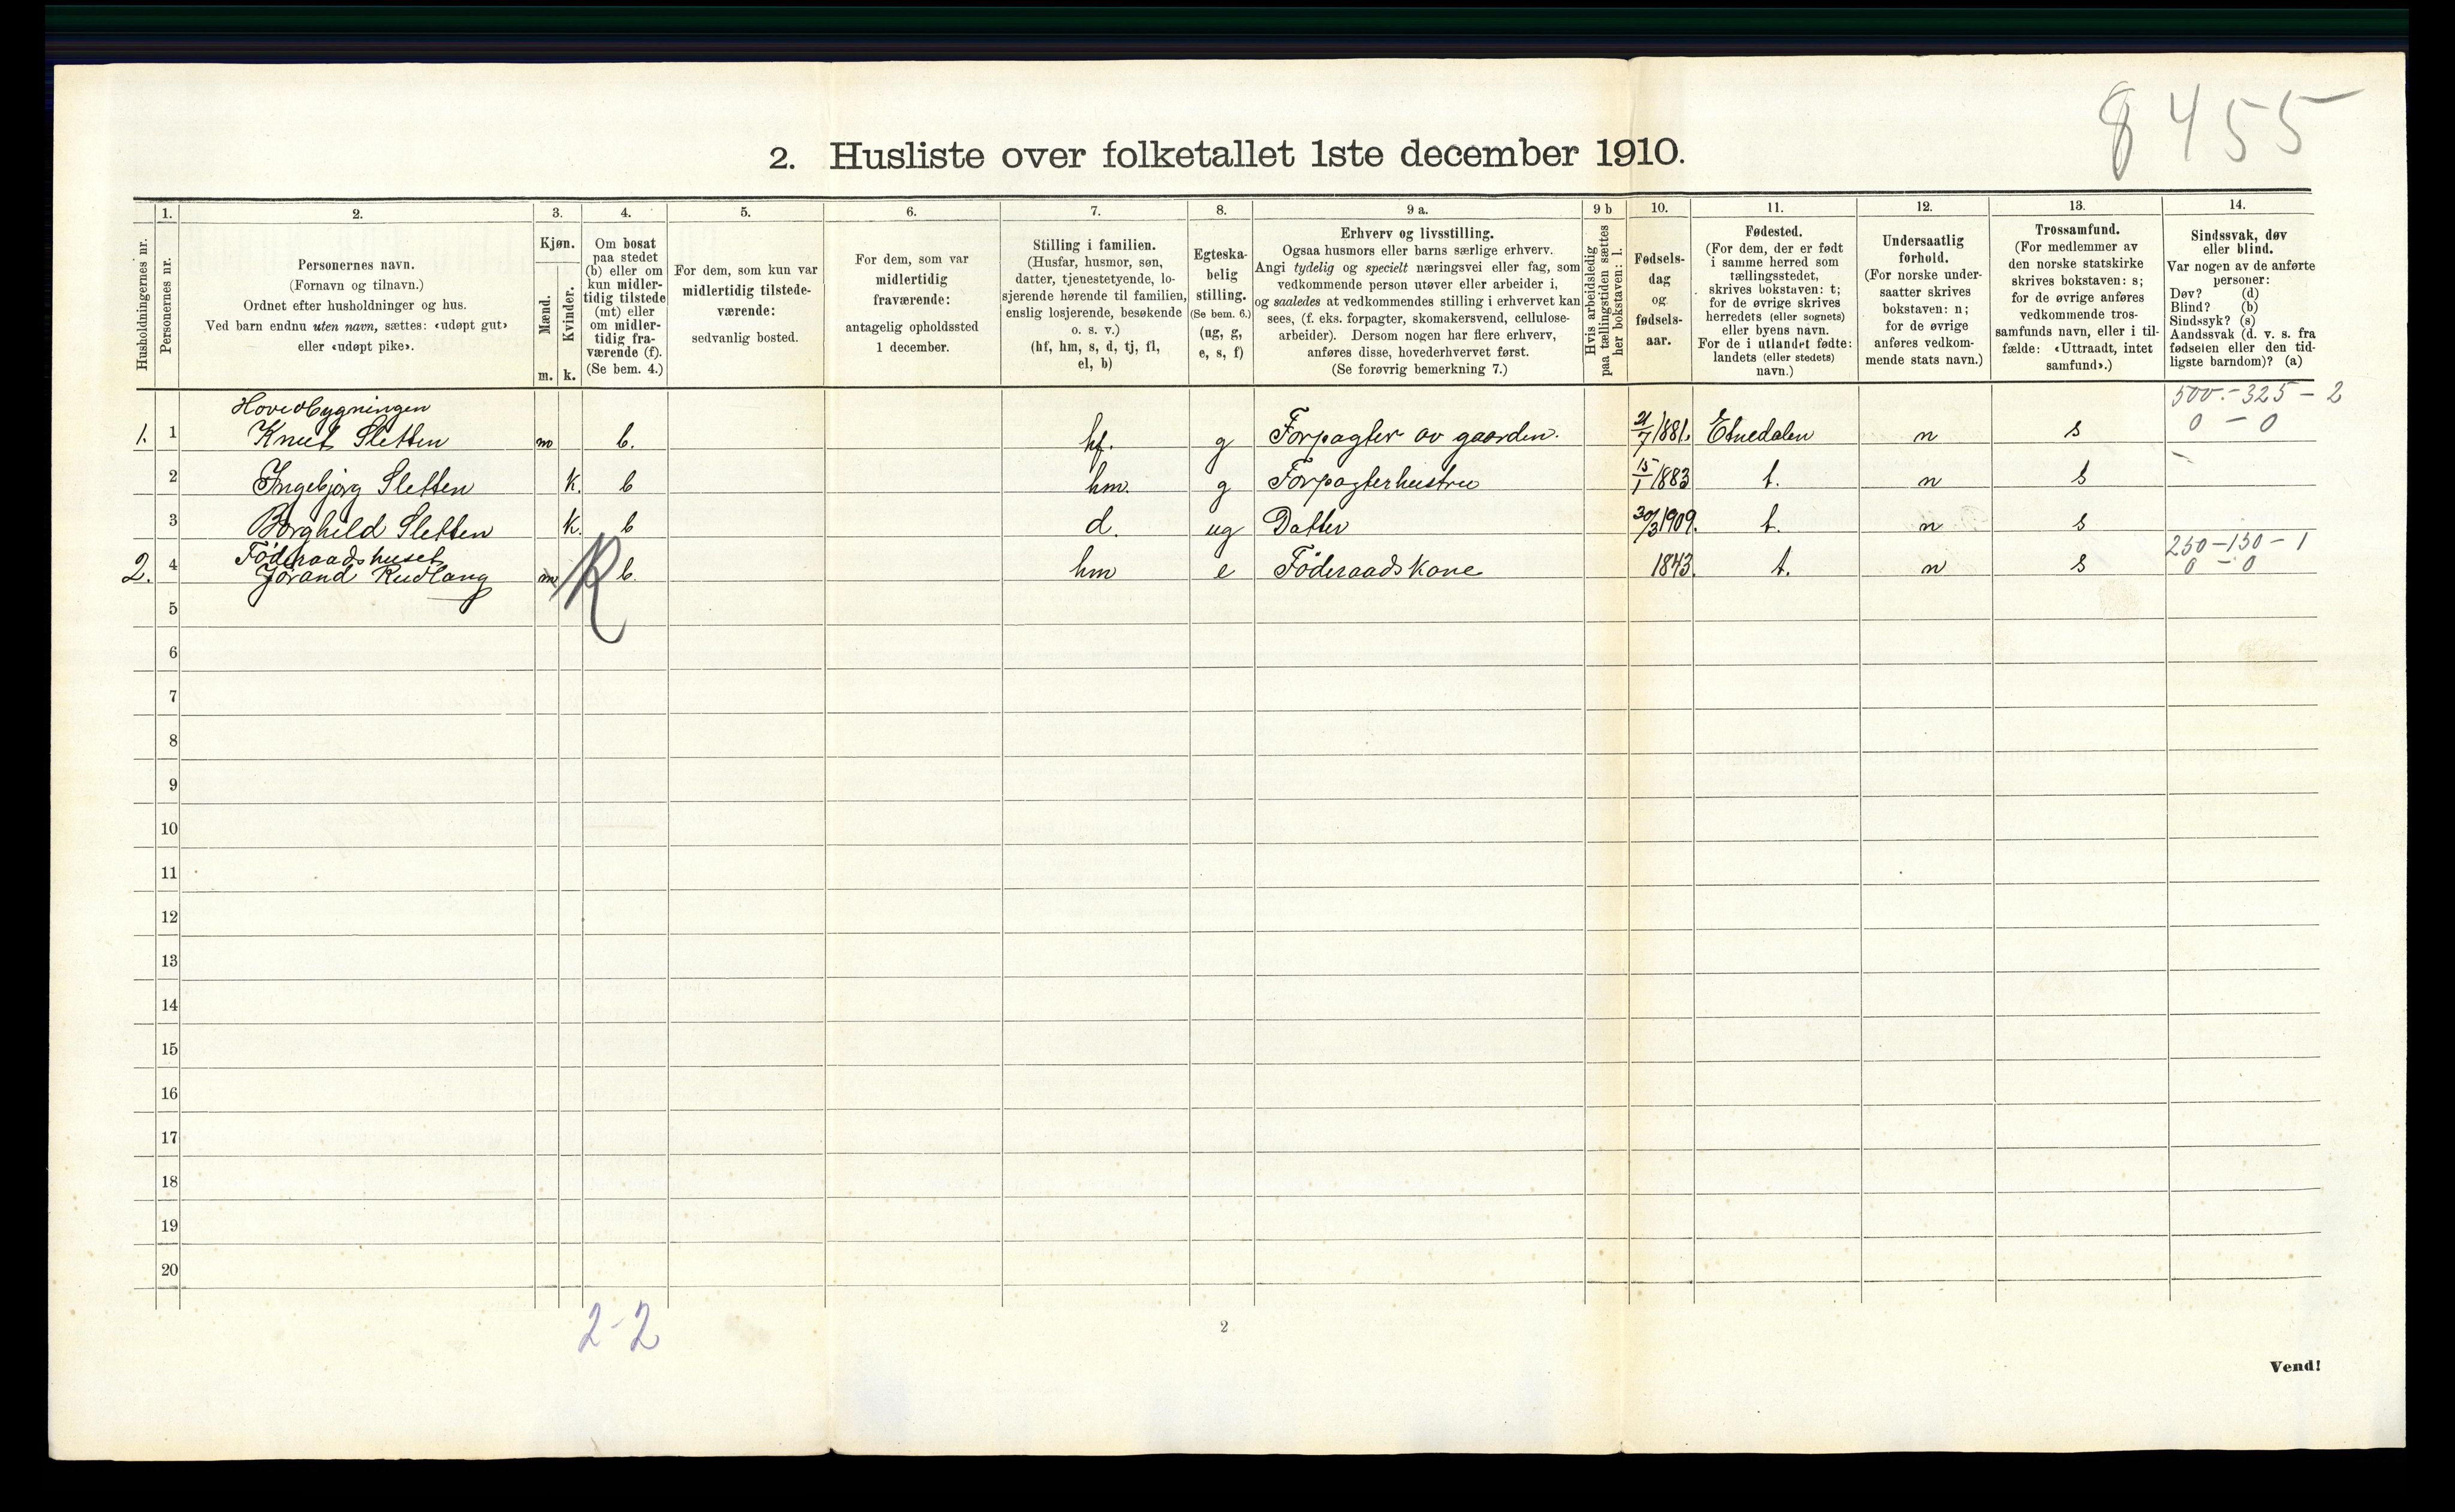 8455
2. Husliste over folketallet 1ste december 1910.
Husholdningernes nr.
1.
Personernes nr.
2.
Personernes navn.
(Fornavn og tilnavn.)
Ordnet efter husholdninger og hus.
Ved barn endnu uten navn, sættes: «udøpt gut»
eller «udøpt pike».
3.
Kjøn.
Mænd.
Kvinder.
m. k.
4.
Om bosat
paa stedet
(b) eller om
kun midler-
tidig tilstede
(mt) eller
om midler-
tidig fra-
værende (f).
(Se bem. 4.)
5.
For dem, som kun var
midlertidig tilstede-
værende:
sedvanlig bosted.
6.
For dem, som var
midlertidig
fraværende:
antagelig opholdssted
1 december.
7.
Stilling i familien.
(Husfar, husmor, søn,
datter, tjenestetyende, lo-
sjerende hørende til familien,
enslig losjerende, besøkende
o. s. v.)
(hf, hm, s, d, tj, fl,
el, b)
8.
Egteska-
belig
stilling.
(Se bem. 6.)
(ug, g,
e, s, f)
9 a.
Erhverv og livsstilling.
Ogsaa husmors eller barns særlige erhverv.
Angi tydelig og specielt næringsvei eller fag, som
vedkommende person utøver eller arbeider i,
og saaledes at vedkommendes stilling i erhvervet kan
sees, (f. eks. forpagter, skomakersvend, cellulose-
arbeider). Dersom nogen har flere erhverv,
anføres disse, hovederhvervet først.
(Se forøvrig bemerkning 7.)
9 b
Hvis arbeidsledig
paa tællingstiden sættes
her bokstaven: l.
10.
Fødsels-
dag
og
fødsels-
aar.
11.
Fødested.
(For dem, der er født
i samme herred som
tællingsstedet,
skrives bokstaven: t;
for de øvrige skrives
herredets (eller sognets)
eller byens navn.
For de i utlandet fødte:
landets (eller stedets)
navn.)
12.
Undersaatlig
forhold.
(For norske under-
saatter skrives
bokstaven: n;
for de øvrige
anføres vedkom-
mende stats navn.)
13.
Trossamfund.
(For medlemmer av
den norske statskirke
skrives bokstaven: s;
for de øvrige anføres
vedkommende tros-
samfunds navn, eller i til-
fælde: «Uttraadt, intet
samfund».)
14.
Sindssvak, døv
eller blind.
Var nogen av de anførte
personer:
Døv? (d)
Blind? (b)
Sindssyk? (s)
Aandssvak (d. v. s. fra
fødselen eller den tid-
ligste barndom)? (a)
Hovedbygningen 500.-325-2
1. 1 Knut Sletten m b. hf. g Forpagter av gaarden. 21/7 1881. Etnedalen n s 0-0
2 Ingebjørg Sletten k. b hm. g Forpagterhustru 15/1 1883 t. n s
3 Borghild Sletten k. b d. ug Datter 30/3 1909. t. n s
Föderaadshuset 250-150-1
2. 4 Jörand Rudlang m K b. hm e Föderaadskone 1843. t. n s 0-0
5
6
7
8
9
10
11
12
13
14
15
16
17
18
19
20
2-2
2
Vend!